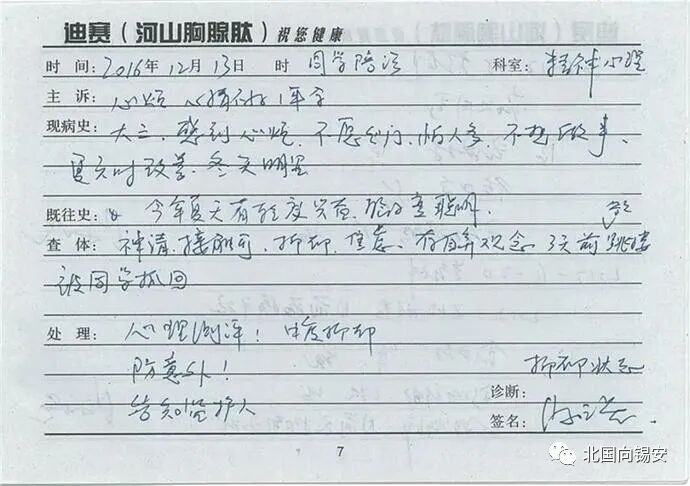 迪赛（河山胸腺肽）祝您健康
时 间：2016年12月13日 时 同学陪诊 科室：精神心理
主 诉： 心烦 心情不好1年余
现病史： 大三、感到心烦、不愿出门、怕人多、不想做事、
夏天时改善、冬天明显
既往史： 今年夏天有轻度兴奋、脑子变聪明.
查 体： 神清、接触可、抑郁、焦虑、存自弃观念 3天前欲跳楼
被同学抓回
处 理： 心理测评！中度抑郁
防意外！ 抑郁状态
告知监护人 诊断：
签名：
7
北国向锡安